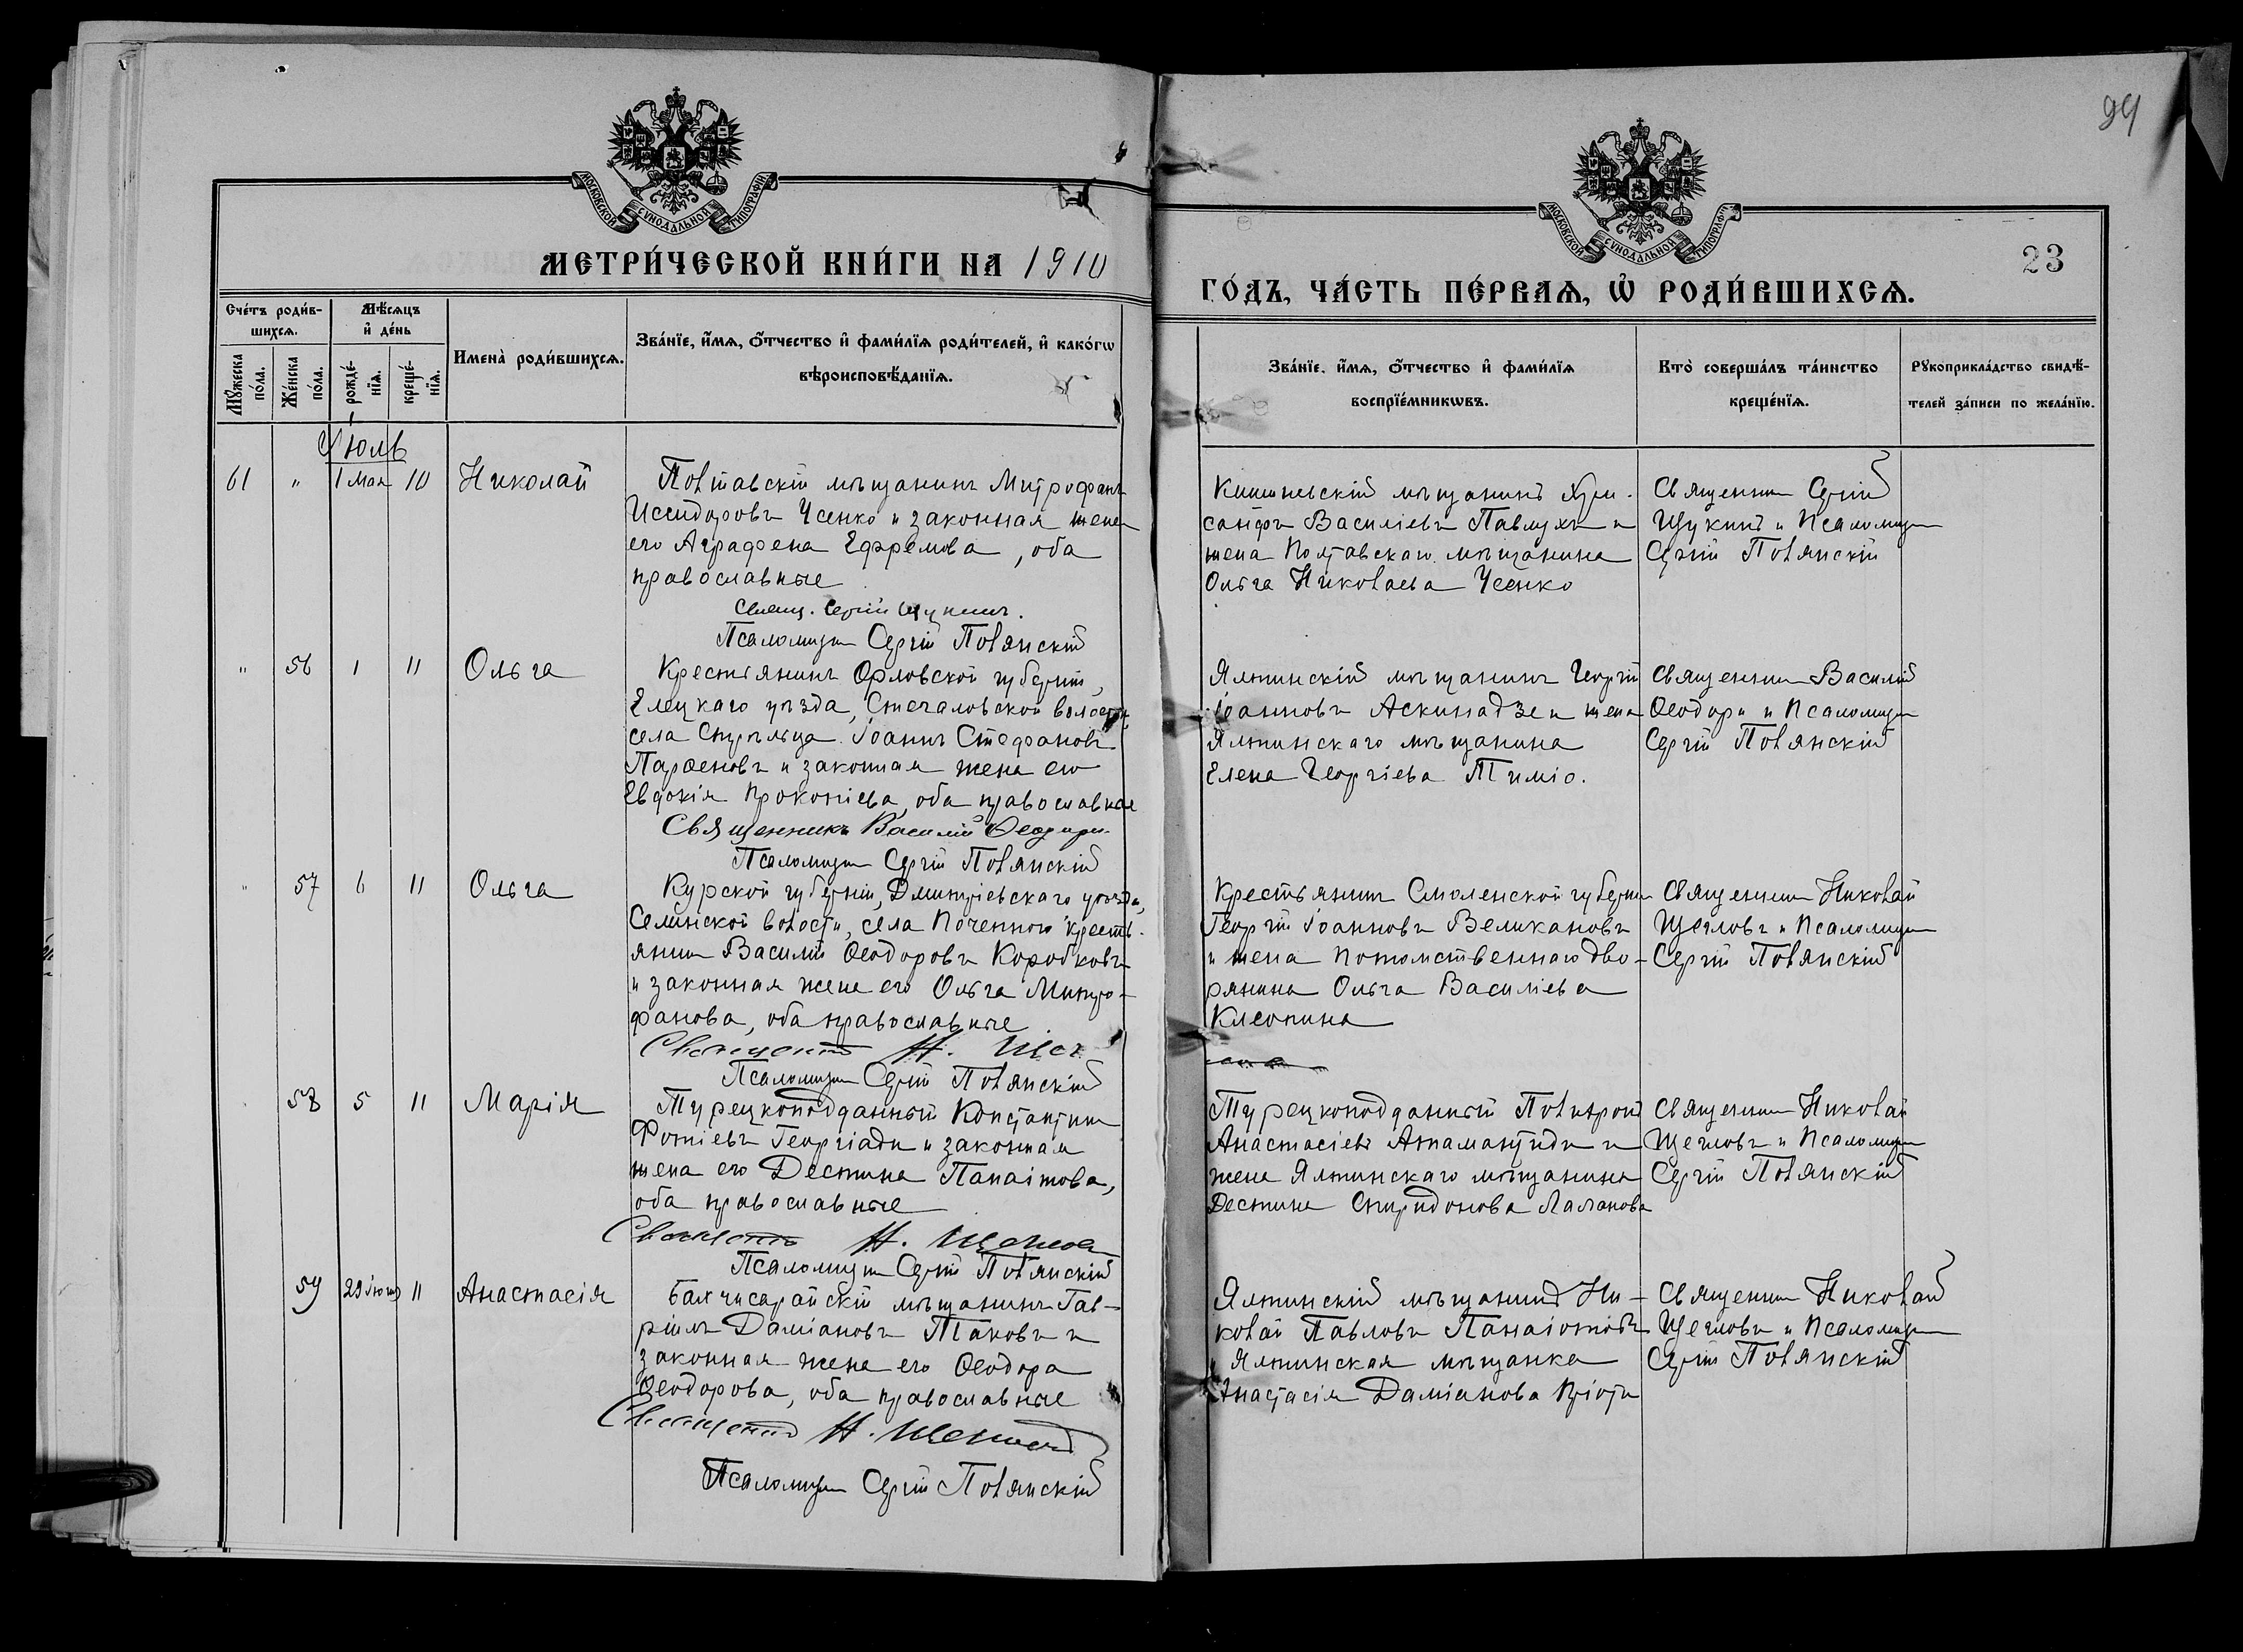 99
МОСКОВСКОЙ СѴНОДАЛЬНОЙ ТИПОГРАФІИ
МОСКОВСКОЙ СѴНОДАЛЬНОЙ ТИПОГРАФІИ
МЕТРИ́ЧЕСКОЙ КНИ́ГИ НА 1910
ГО́ДЪ, ЧА́СТЬ ПЕ́РВАѦ, Ѽ РОДИ́ВШИХСѦ.
23
Сче́тъ роди́в-
шихсѧ.
Мꙋ́жеска по́ла.
Же́нска по́ла.
Мѣ́сѧцъ
и҆ де́нь
рожде́-
нїѧ.
креще́-
нїѧ.
Имена̀ роди́вшихсѧ.
Зва́нїе, и҆́мѧ, ѻ҆́тчество и҆ фами́лїѧ роди́телей, и҆ како́гѡ
вѣроисповѣ́данїѧ.
Зва́нїе, и҆́мѧ, ѻ҆́тчество и҆ фами́лїѧ
воспрїе́мникѡвъ.
Кто̀ соверша́лъ та́инство
креще́нїѧ.
Рꙋкоприкла́дство свидѣ́-
телей за́писи по жела́нїю.
Іюль
61 " 1 Мая 10 Николай
Полтавскій мѣщанинъ Митрофанъ
Исидоровъ Усенко и законная жена
его Аграфена Ефремова, оба
православные
Свящ. Сергій Щукинъ.
Псаломщик Сергій Полянскій
Кишиневскій мѣщанинъ Хри-
санфъ Василіевъ Павлухъ и
жена Полтавскаго мѣщанина
Ольга Николаева Усенко
Священник Сергій
Щукинъ и Псаломщик
Сергій Полянскій
" 56 1 11 Ольга
Крестьянинъ Орловской губерніи,
Елецкаго уѣзда, Стегаловской волости
села Стрѣльца Іоаннъ Стефановъ
Парѳеновъ и законная жена его
Евдокія Прокопіева, оба православные
Священникъ Василій Ѳеодори
Псаломщик Сергій Полянскій
Ялтинскій мѣщанинъ Георгій
Іоанновъ Аскинадзе и жена
Ялтинскаго мѣщанина
Елена Георгіева Тиміо.
Священник Василій
Ѳеодори и Псаломщик
Сергій Полянскій
" 57 6 11 Ольга
Курской губерніи, Дмитріевскаго уѣзда,
Селинской волости, села Поченного кресть-
янин Василій Ѳеодоровъ Коробковъ
и законная жена его Ольга Митро-
фанова, оба православные
Священникъ Н. Щег
Псаломщик Сергій Полянскій
Крестьянин Смоленской губерніи
Георгій Іоанновъ Великановъ
и жена потомственнаго дво-
рянина Ольга Василіева
Клеопина
Священник Николай
Щегловъ и Псаломщик
Сергій Полянскій
58 5 11 Марія
Турецкоподданный Константин
Фотіевъ Георгіади и законная
жена его Деспина Панаіотова,
оба православные
Священникъ Н. Щеглов
Псаломщик Сергій Полянскій
Турецкоподданный Полихроній
Анастасіевъ Атаманиди и
жена Ялтинскаго мѣщанина
Деспина Спиридонова Лаганова
Священник Николай
Щегловъ и Псаломщик
Сергій Полянскій
59 29 іюня 11 Анастасія
Бахчисарайскій мѣщанинъ Гав-
ріилъ Даміановъ Таковъ и
законная жена его Ѳеодора
Ѳеодорова, оба православные
Священникъ Н. Щегловъ
Псаломщик Сергій Полянскій
Ялтинскій мѣщанинъ Ни-
колай Павловъ Панаіотовъ
и Ялтинская мѣщанка
Анастасія Даміанова
Священник Николай
Щегловъ и Псаломщик
Сергій Полянскій